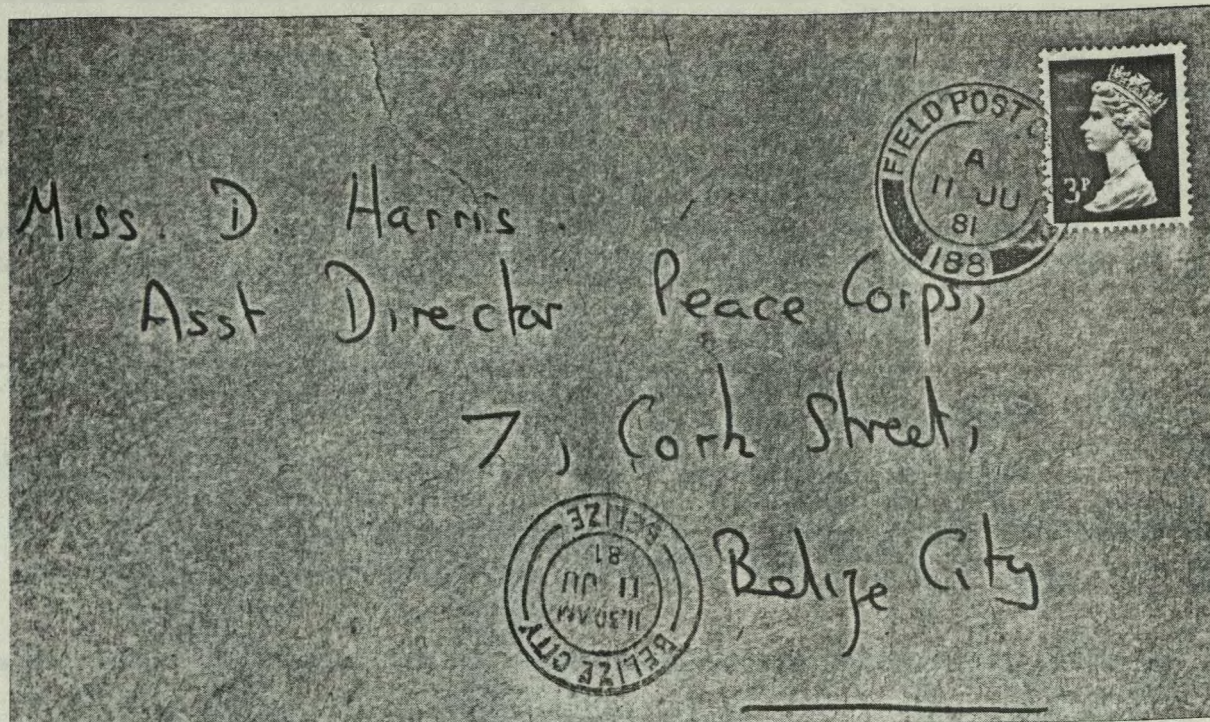 FIELD POST
A
11 JU
81
188
3P
Miss. D. Harris.
Asst Director Peace Corps,
7, Cork Street,
Belize City
BELIZE CITY
11.30AM
11 JU
81
BELIZE